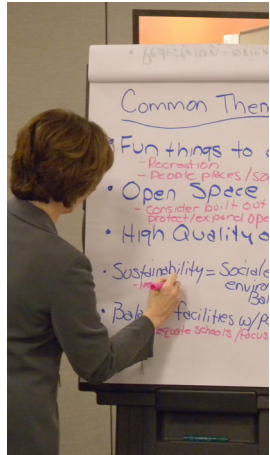 Common Them
• Fun things to
- Recreation
- People places/so
• Open Space
- Consider built out
protect/expand ope
• High Quality o
• Sustainability = Social
environ
Bal
• Bala facilities w/po
equate schools/focus